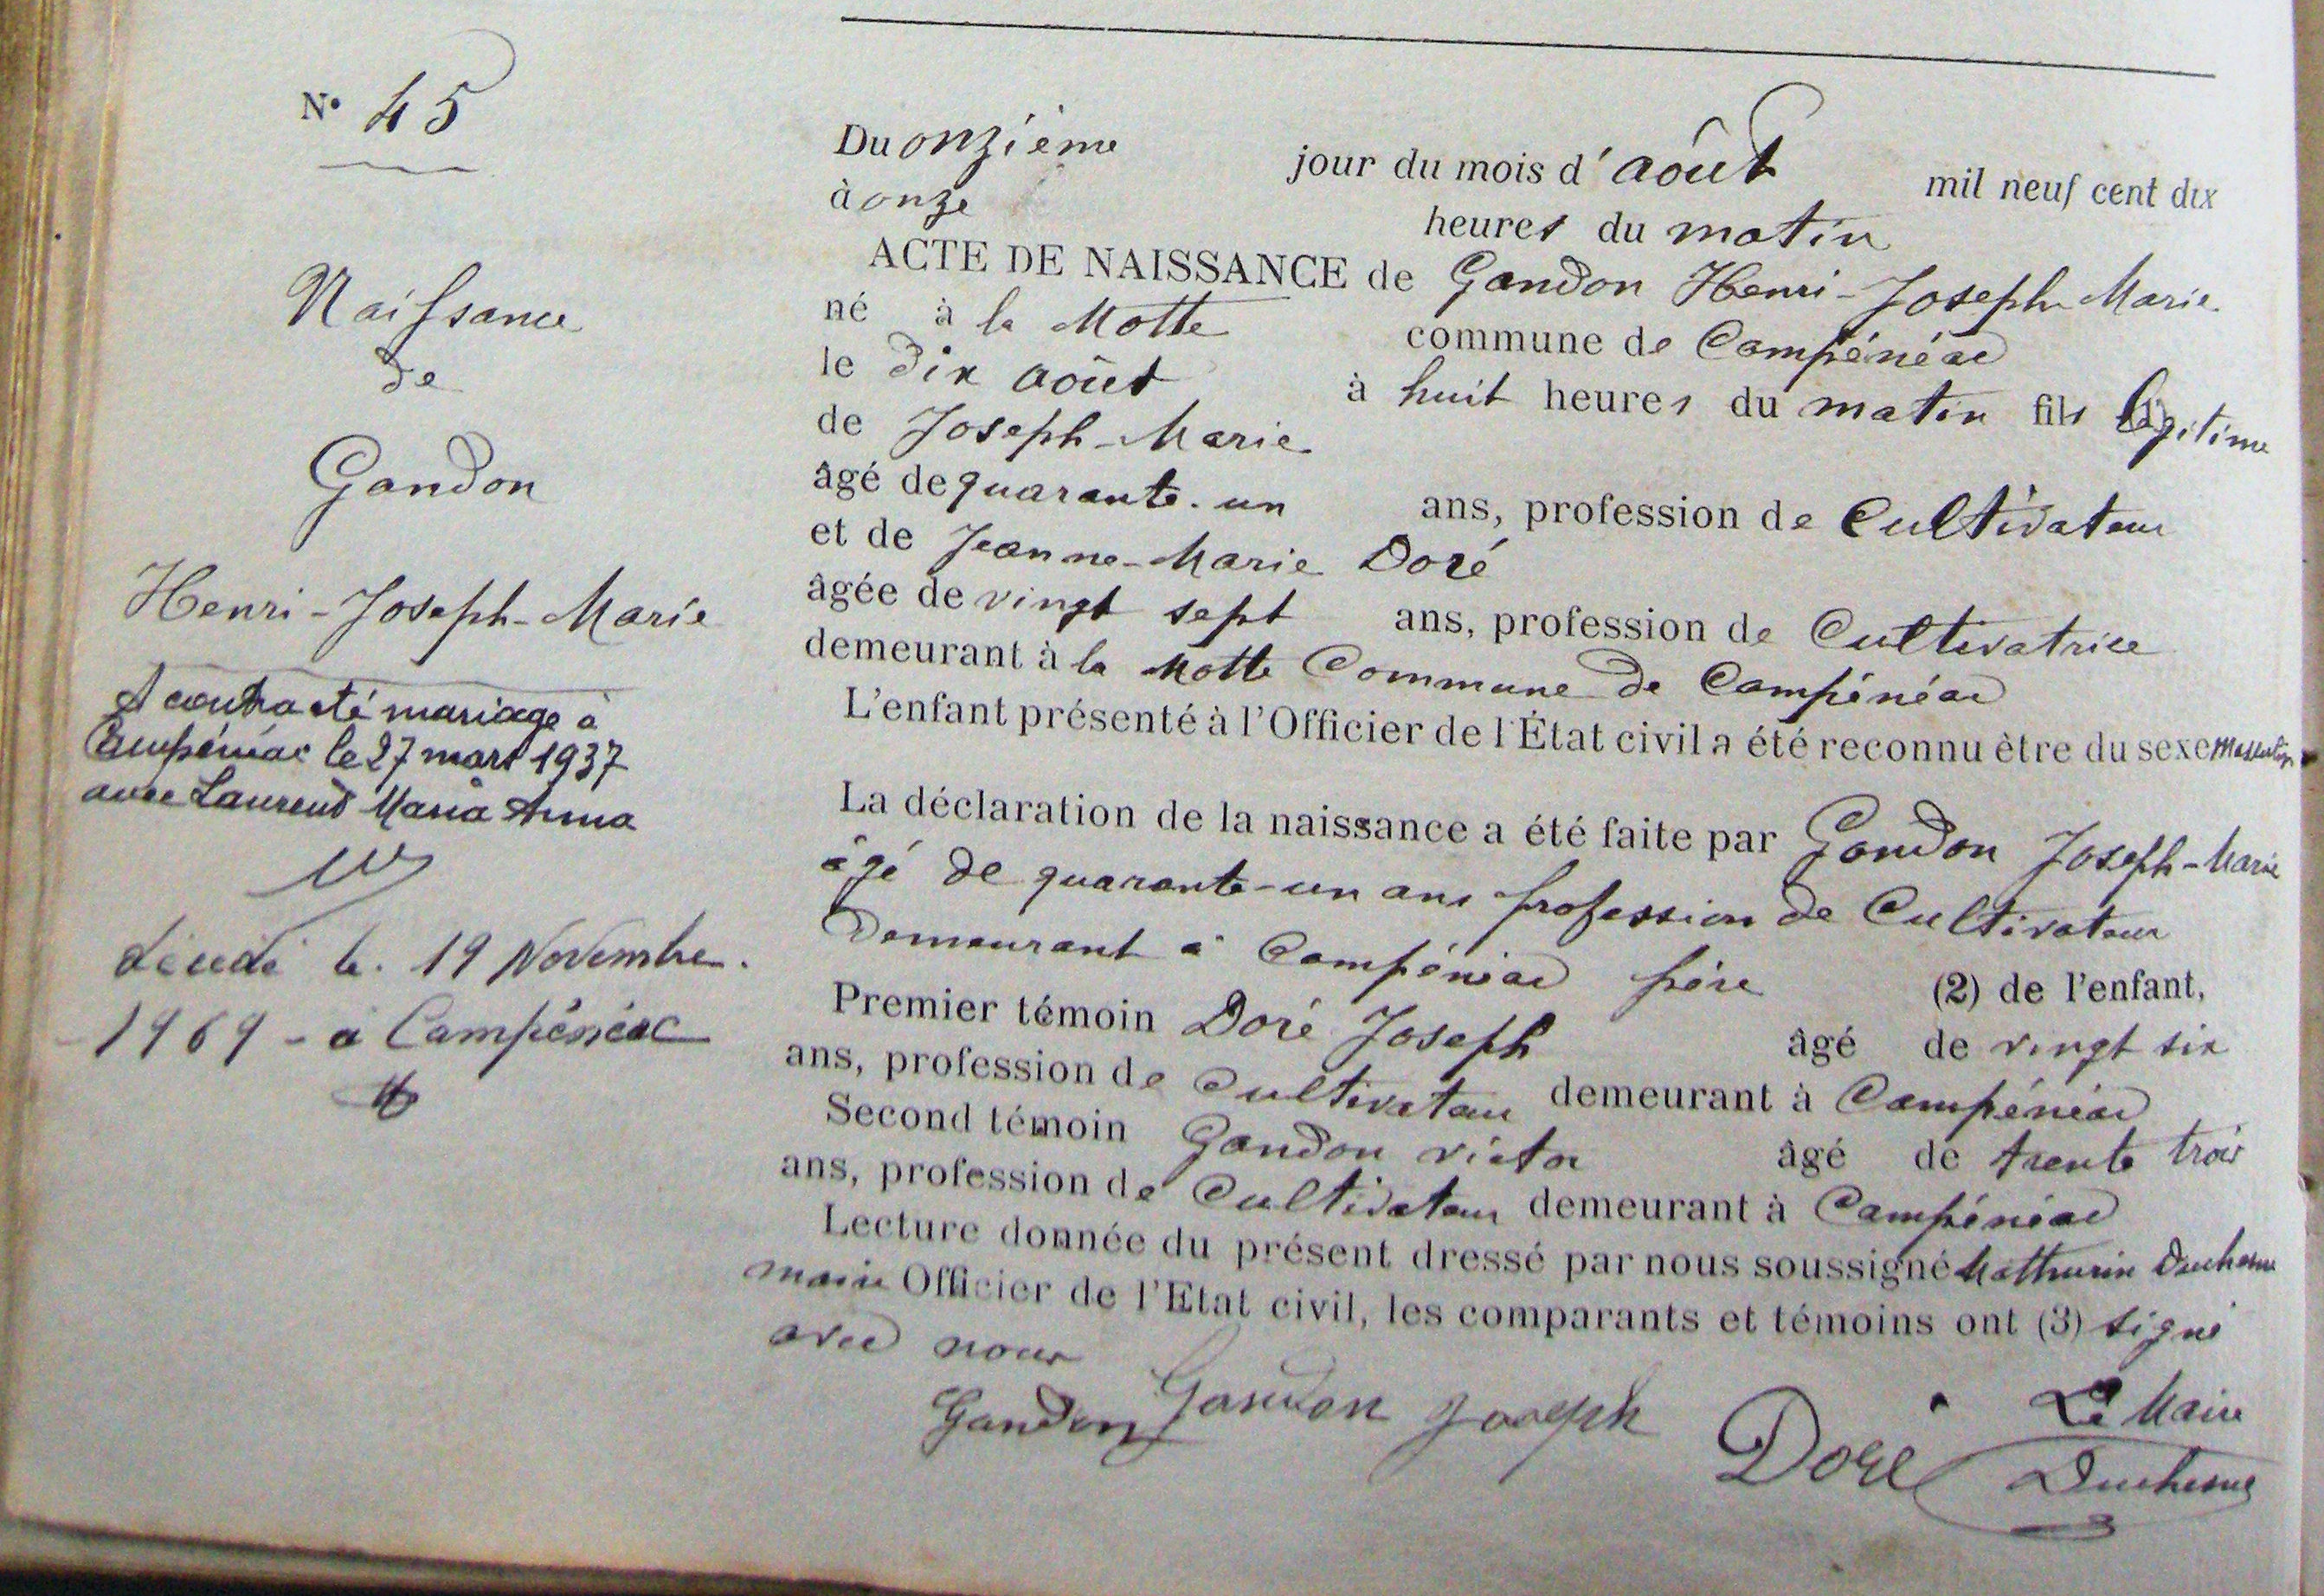 N° 45
Naissance
de
Gandon
Henri-Joseph-Marie
A contracté mariage à
Campénéac le 27 mars 1937
avec Laurent Maria Anna
décédé le 19 Novembre
1969 - à Campénéac
Du onzième jour du mois d'août mil neuf cent dix
à onze heures du matin
ACTE DE NAISSANCE de Gandon Henri-Joseph-Marie
né à la Motte commune de Campénéac
le dix août à huit heures du matin fils légitime
de Joseph-Marie
âgé de quarante-un ans, profession de Cultivateur
et de Jeanne-Marie Doré
âgée de vingt sept ans, profession de Cultivatrice
demeurant à la Motte Commune de Campénéac
L'enfant présenté à l'Officier de l'État civil a été reconnu être du sexe masculin
La déclaration de la naissance a été faite par Gandon Joseph-Marie
âgé de quarante-un ans profession de Cultivateur
Demeurant à Campénéac père (2) de l'enfant,
Premier témoin Doré Joseph âgé de vingt six
ans, profession de Cultivateur demeurant à Campénéac
Second témoin Gandon victor âgé de trente trois
ans, profession de Cultivateur demeurant à Campénéac
Lecture donnée du présent dressé par nous soussigné Mathurin Duchesne
maire Officier de l'Etat civil, les comparants et témoins ont (3) signé
avec nous
Gandon Gandon Joseph Doré Le Maire
Duchesne